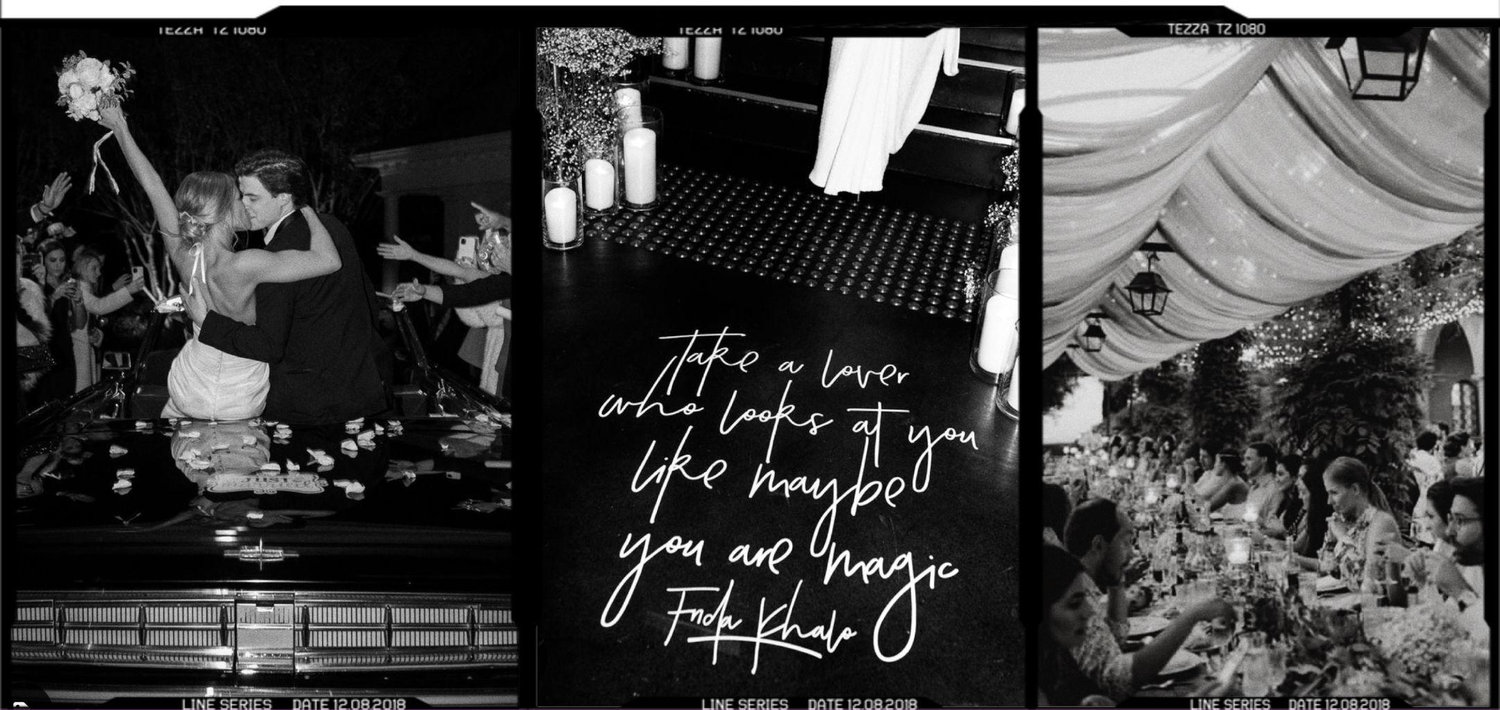 TEZZA TZ 1080
TEZZA TZ 1080
TEZZA TZ 1080
JUST
Take a lover
who looks at you
like maybe
you are magic
Frida Khalo
LINE SERIES DATE 12.08.2018
LINE SERIES DATE 12.08.2018
LINE SERIES DATE 12.08.2018